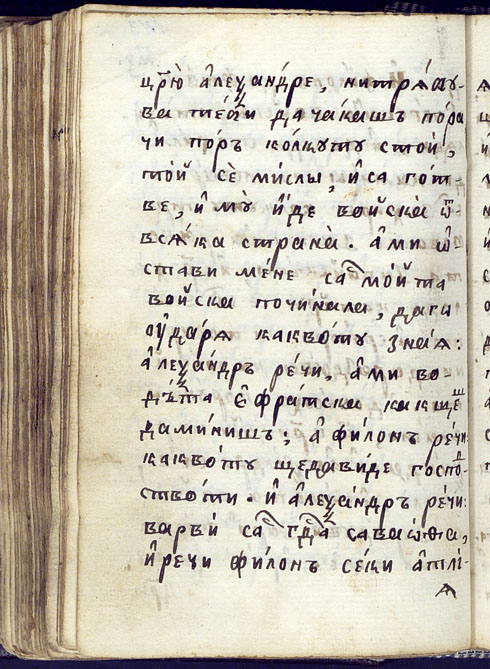 цр҃ю а҆леѯа́ндре, нитрѧ́ѹ-
ва тебѣ́и да чака́шъ по́ра
чи по́ръ ко́лкуту стои́,
то́й сѐ ми́слы, и҆са гот-
ве, и҆ мꙋ̀ и҆́де во́йска ѿ-
всѧ́ка страна̀. а҆ми ѡ҆-
стави мене са мо́йта
войска почина́ла, даги
ѹ҆да́рѧ какво́ту зна́ѧ:
а҆леѯа́ндръ ре́чи, а҆ми во-
дѣ́та є҆фра́тска какще
дами́нишъ; а҆ фило́нъ ре́чи
какво́ту щедави́де госпо-
ство́ти. и҆ а҆леѯа́ндръ ре́чи:
варви́ са гд҃а саваѡ́ѳа,
и҆речи фило́нъ се́ки а҆тлі-
ѧ